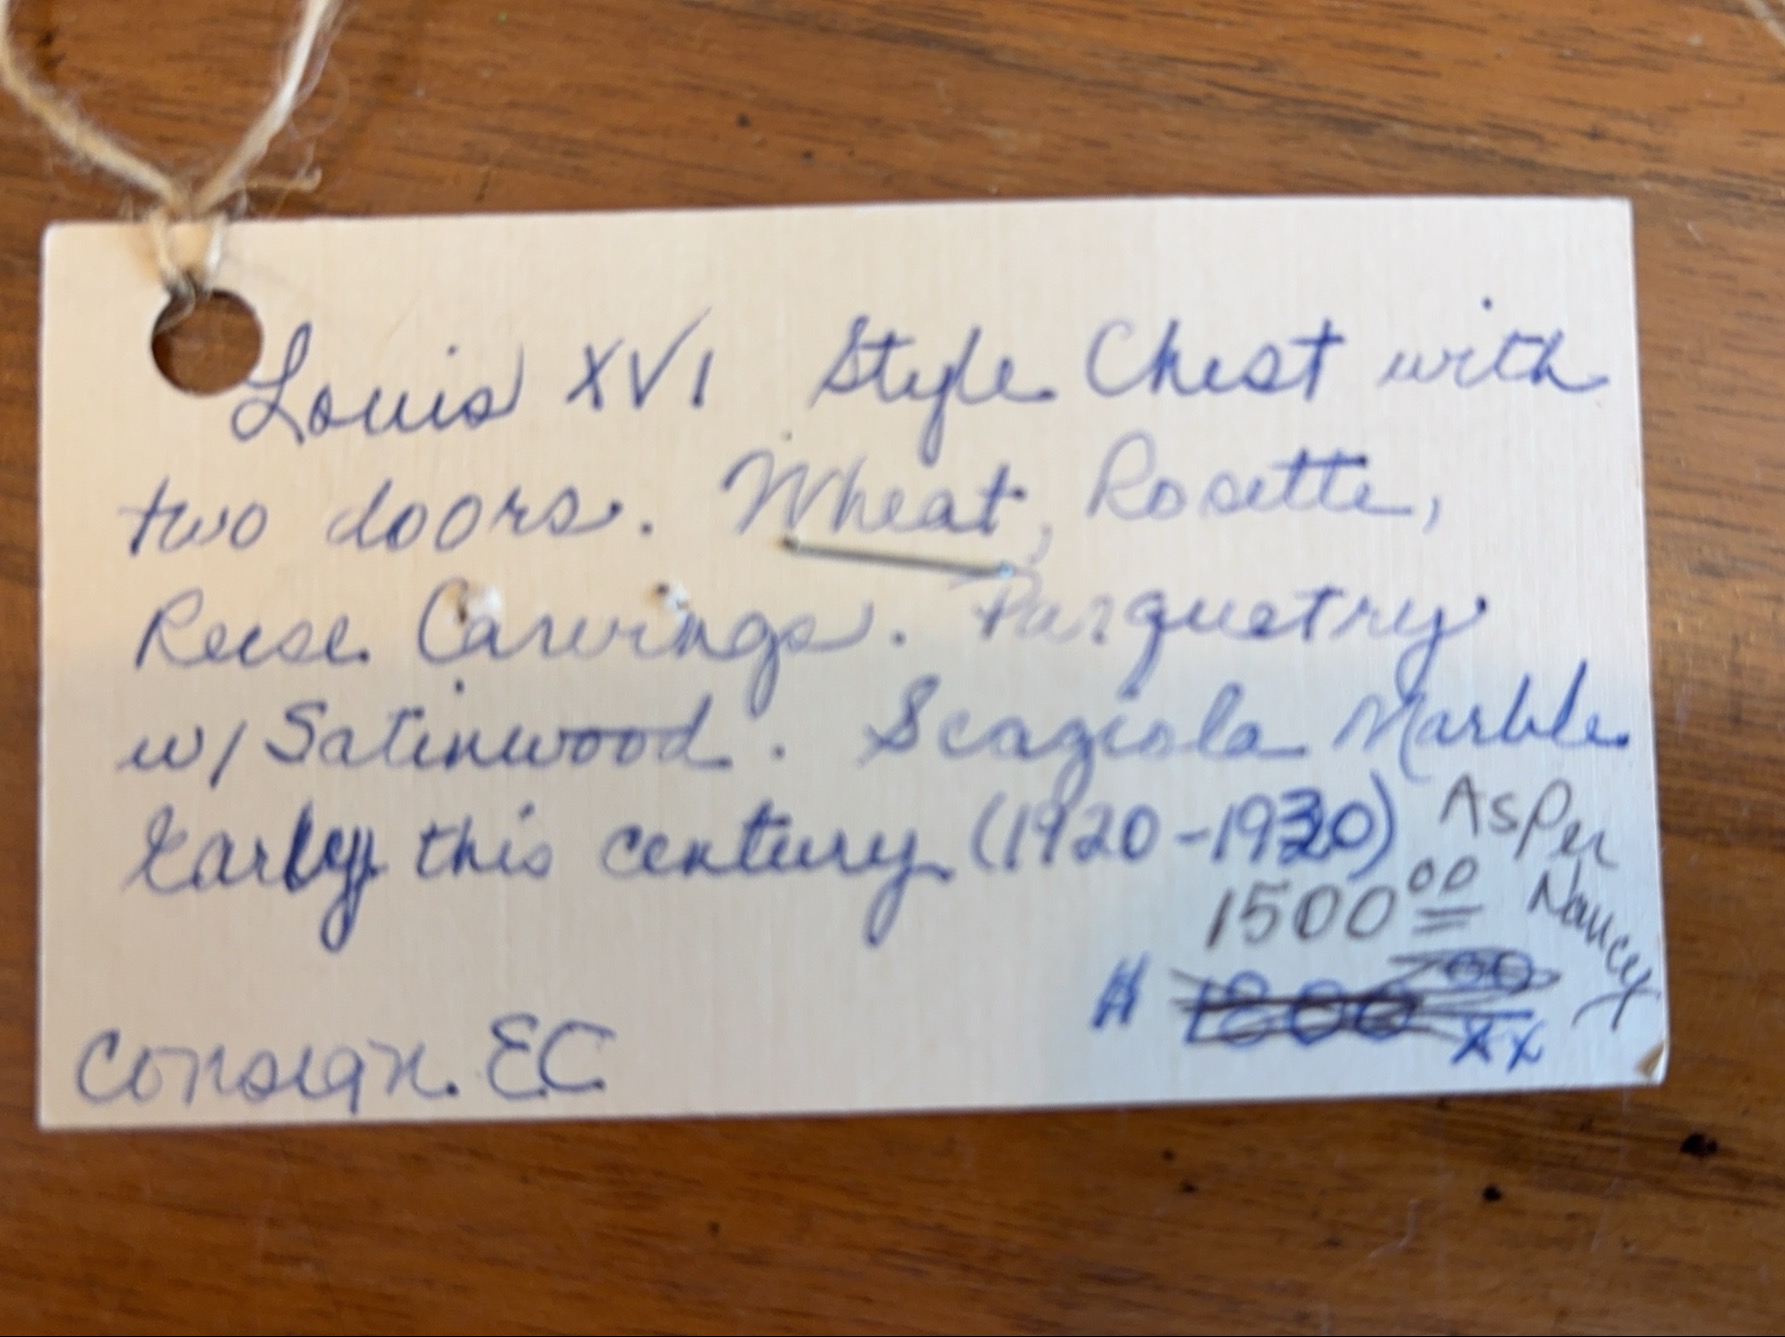 Louis XVI Style Chest with
two doors. Wheat, Rosette,
Reese Carvings. Parquetry
w/ Satinwood. Scagiola Marble
Early this century (1920-1930)
As Per
Nancy
1500.00
$ 1800.00
xx
Consign. EC